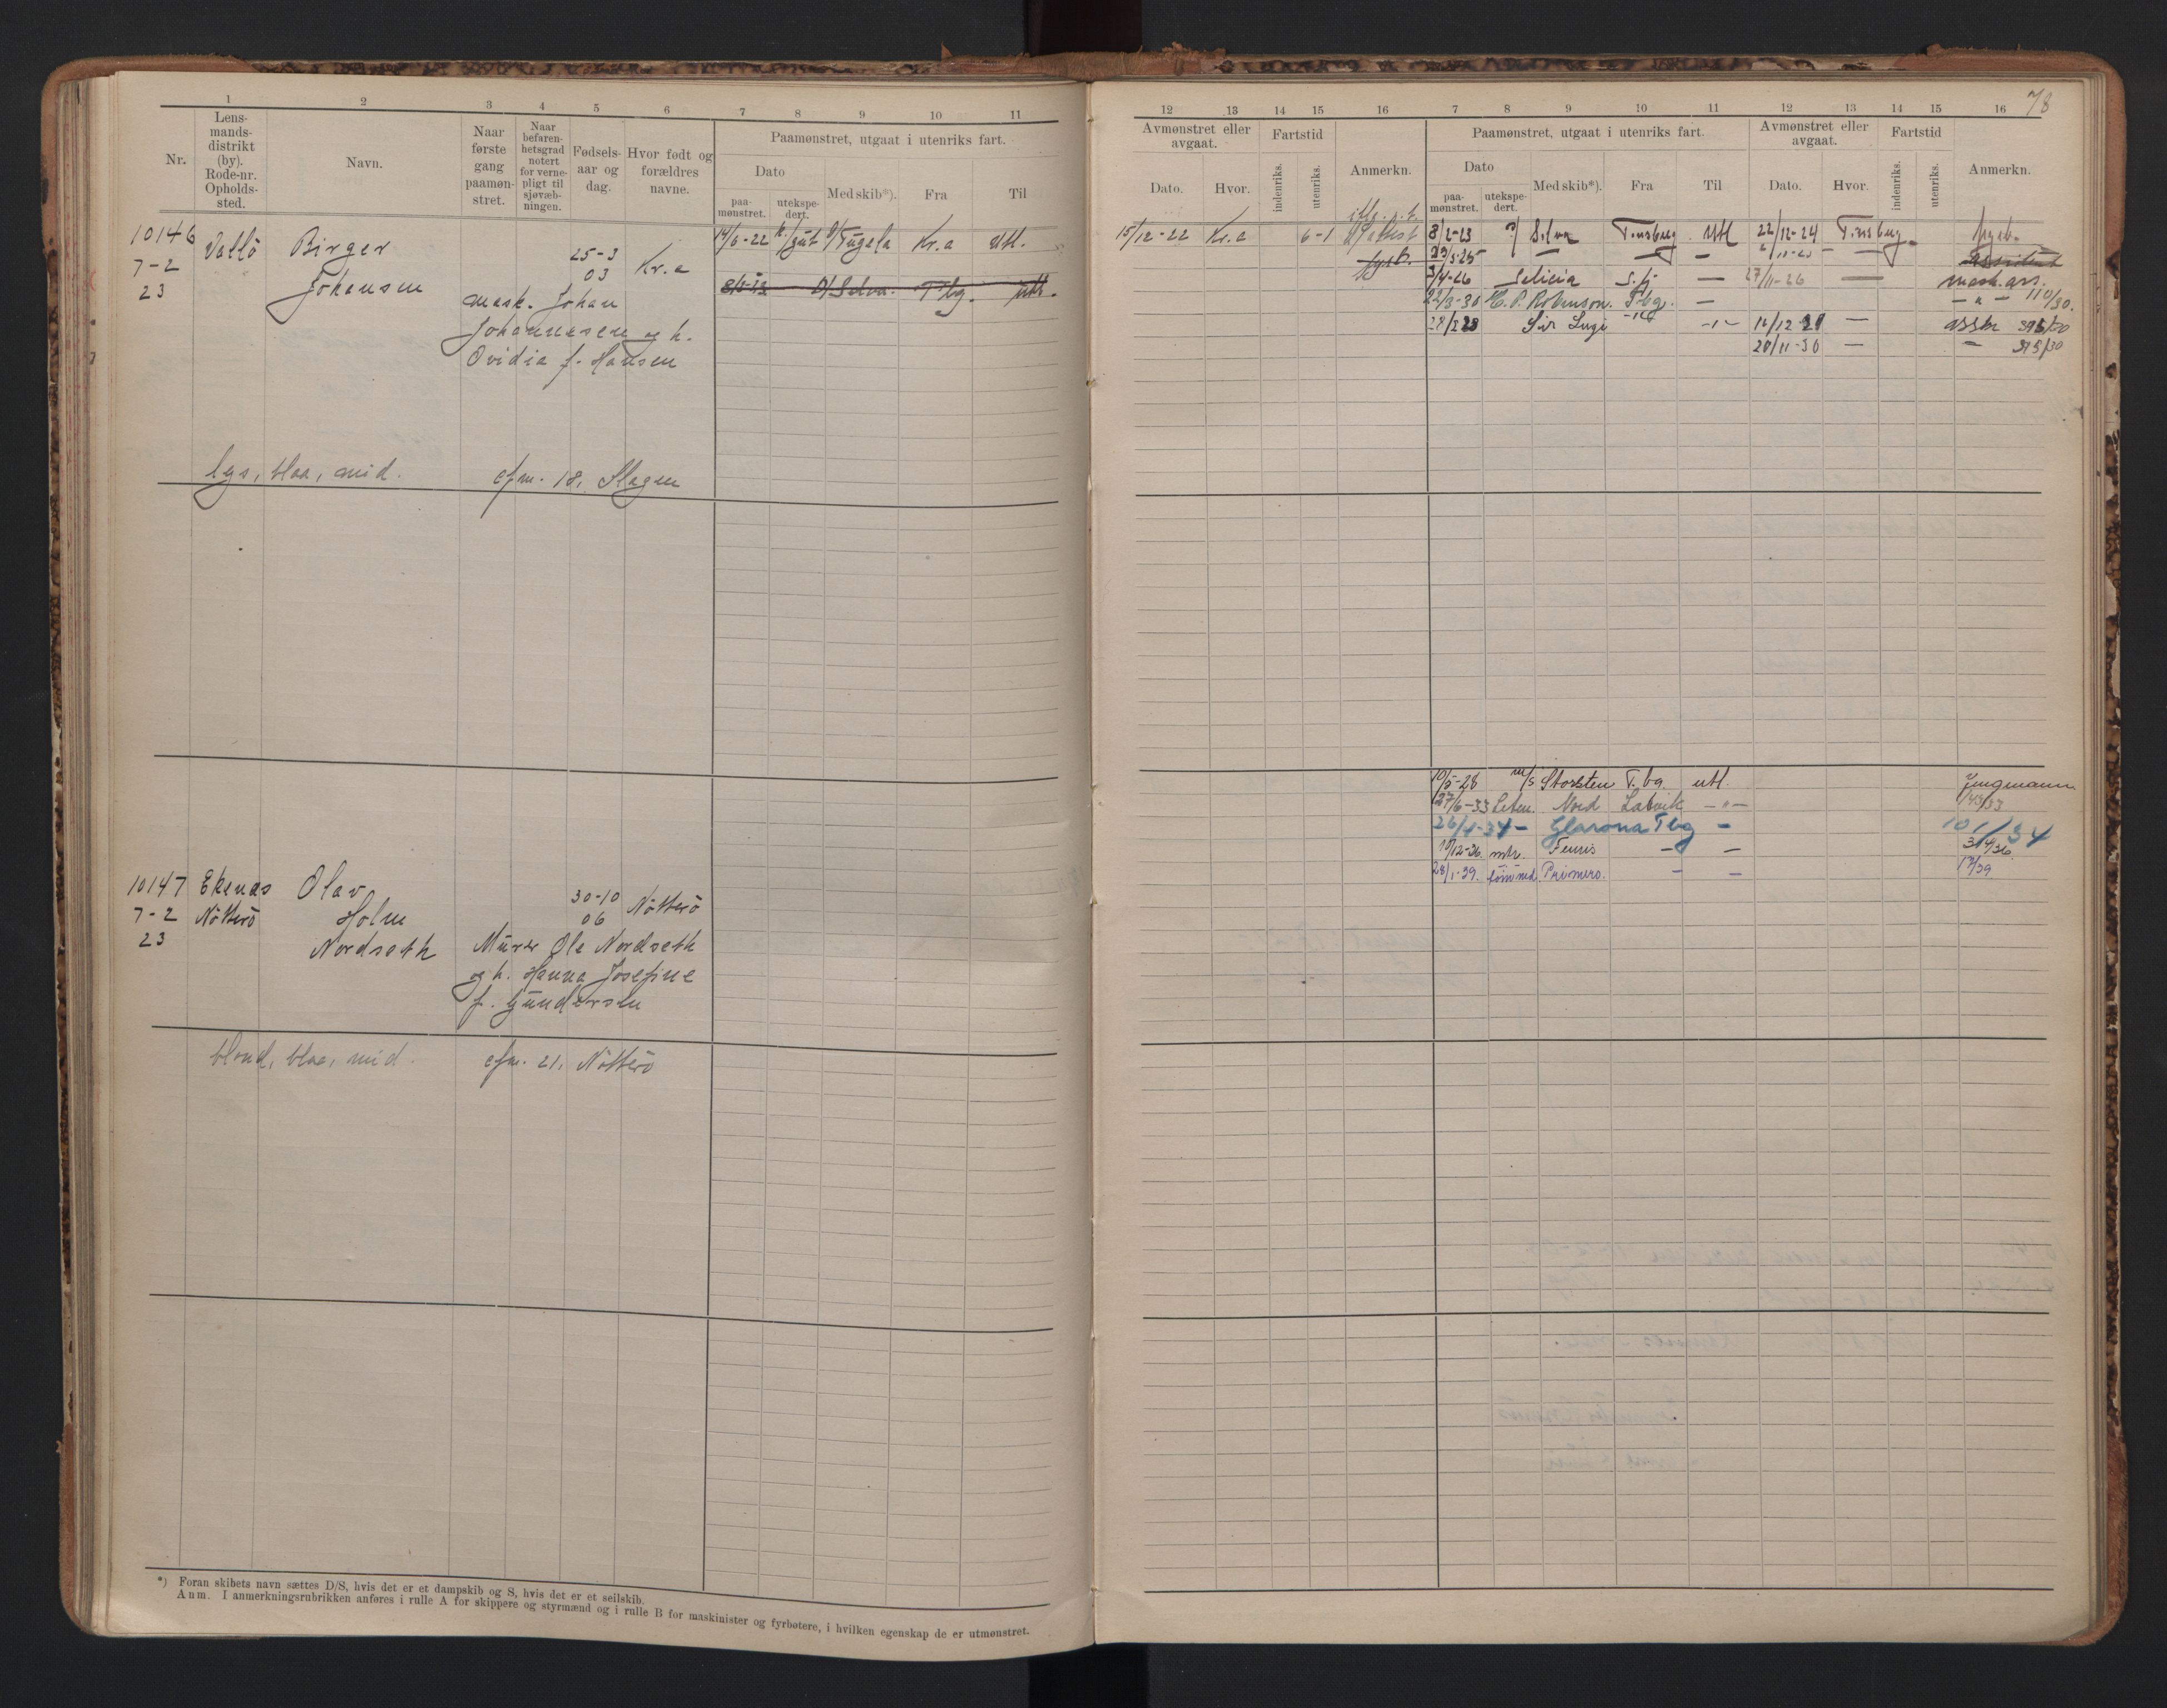 78
1 2 3 4 5 6 7 8 9 10 11
Nr.
Lens-
mands-
distrikt
(by).
Rode-nr.
Opholds-
sted.
Navn.
Naar
første
gang
paamøn-
stret.
Naar
befaren-
hetsgrad
notert
for verne-
pligt til
sjøvæb-
ningen.
Fødsels-
aar og
dag.
Hvor født og
forældres
navne.
Paamønstret, utgaat i utenriks fart.
Dato
paa-
mønstret.
utekspe-
dert.
Med skib*).
Fra
Til
10146 Vallö Birger 25-3 Kr.a 14/6-22 D/ Tugela Kr.a Utl.
7-2 Johansen 03
23 8/2-23 D/ Selva. T.bg. utl.
mask. Johan
Johannesen og h.
Ovidia f. Hansen
lys, blaa, mid. cfm. 18. Slagen
10147 Ekenas Olav 30-10 Nötterö
7-2 Nötterö Holm 06
23 Nordseth Murer Ole Nordseth
og h. Hanna Josefine
f. Gundersen
blond, blaa, mid. cfm. 21. Nötterö
*) Foran skibets navn sættes D/S, hvis det er et dampskib og S, hvis det er et seilskib.
Anm. I anmerkningsrubrikken anføres i rulle A for skippere og styrmænd og i rulle B for maskinister og fyrbøtere, i hvilken egenskap de er utmønstret.
12 13 14 15 16 7 8 9 10 11 12 13 14 15 16
Avmønstret eller
avgaat.
Dato.
Hvor.
Fartstid
indenriks.
utenriks.
Anmerkn.
Paamønstret, utgaat i utenriks fart.
Dato
paa-
mønstret.
utekspe-
dert.
Med skib*).
Fra
Til
Avmønstret eller
avgaat.
Dato.
Hvor.
Fartstid
indenriks.
utenriks.
Anmerkn.
15/12-22 Kr.a 6-1 8/2-23 Selva Tønsberg Utl 22/12-24 Tønsberg fyrb.
fyrb. 23/5-25 — — — —
3/4-26 Selicia S.fj — 27/11-26 — mask.ass.
22/3-30 H. P. Robinson. T.bg. — - " - 110/30.
Sir Lugi -"- -"- —
20/11-30 — —
10/5-28 m/s Storsten T.bg utl. Jungmann
27/6-33 Nord Larvik -"- 143/33
26/4-34 - Glarona Tbg - 101/34
19/12-36. mtr. Fenris - —
28/1-39. Primero. - —